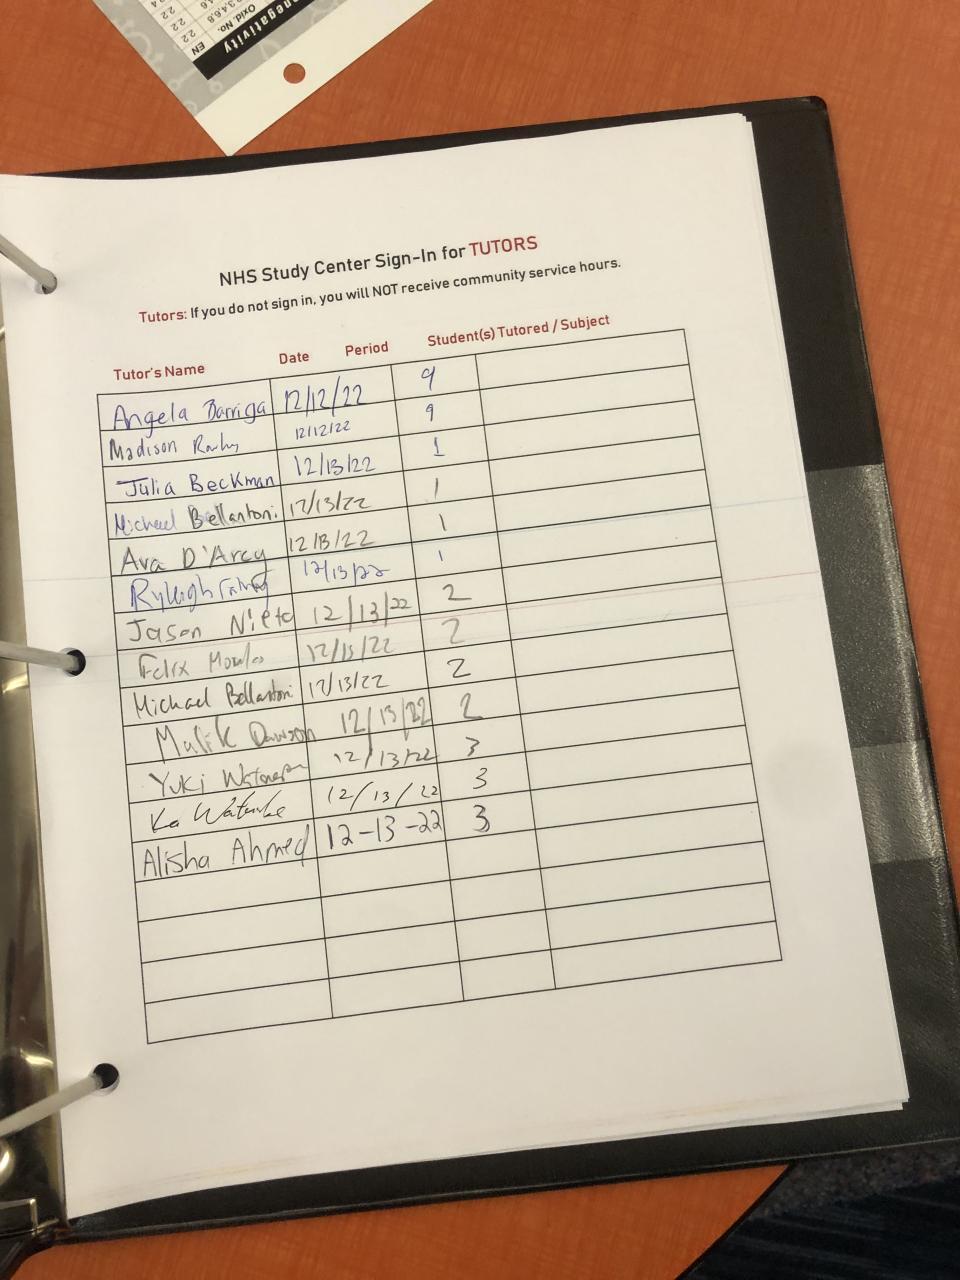 negativity
Oxid. No.
EN
22
22
22
NHS Study Center Sign-In for TUTORS
Tutors: If you do not sign in, you will NOT receive community service hours.
Tutor's Name Date Period Student(s) Tutored / Subject
Angela Barriga 12/12/22 9
Madison 12/12/22 9
Julia Beckman 12/13/22 1
Michael Bellantoni 12/13/22 1
Ava D'Arcy 12/13/22 1
Ryleigh 12/13/22 1
Jason Nieto 12/13/22 2
Felix 12/13/22 2
Michael Bellantoni 12/13/22 2
Malik Dawson 12/13/22 2
Yuki 12/13/22 3
12/13/22 3
Alisha Ahmed 12-13-22 3